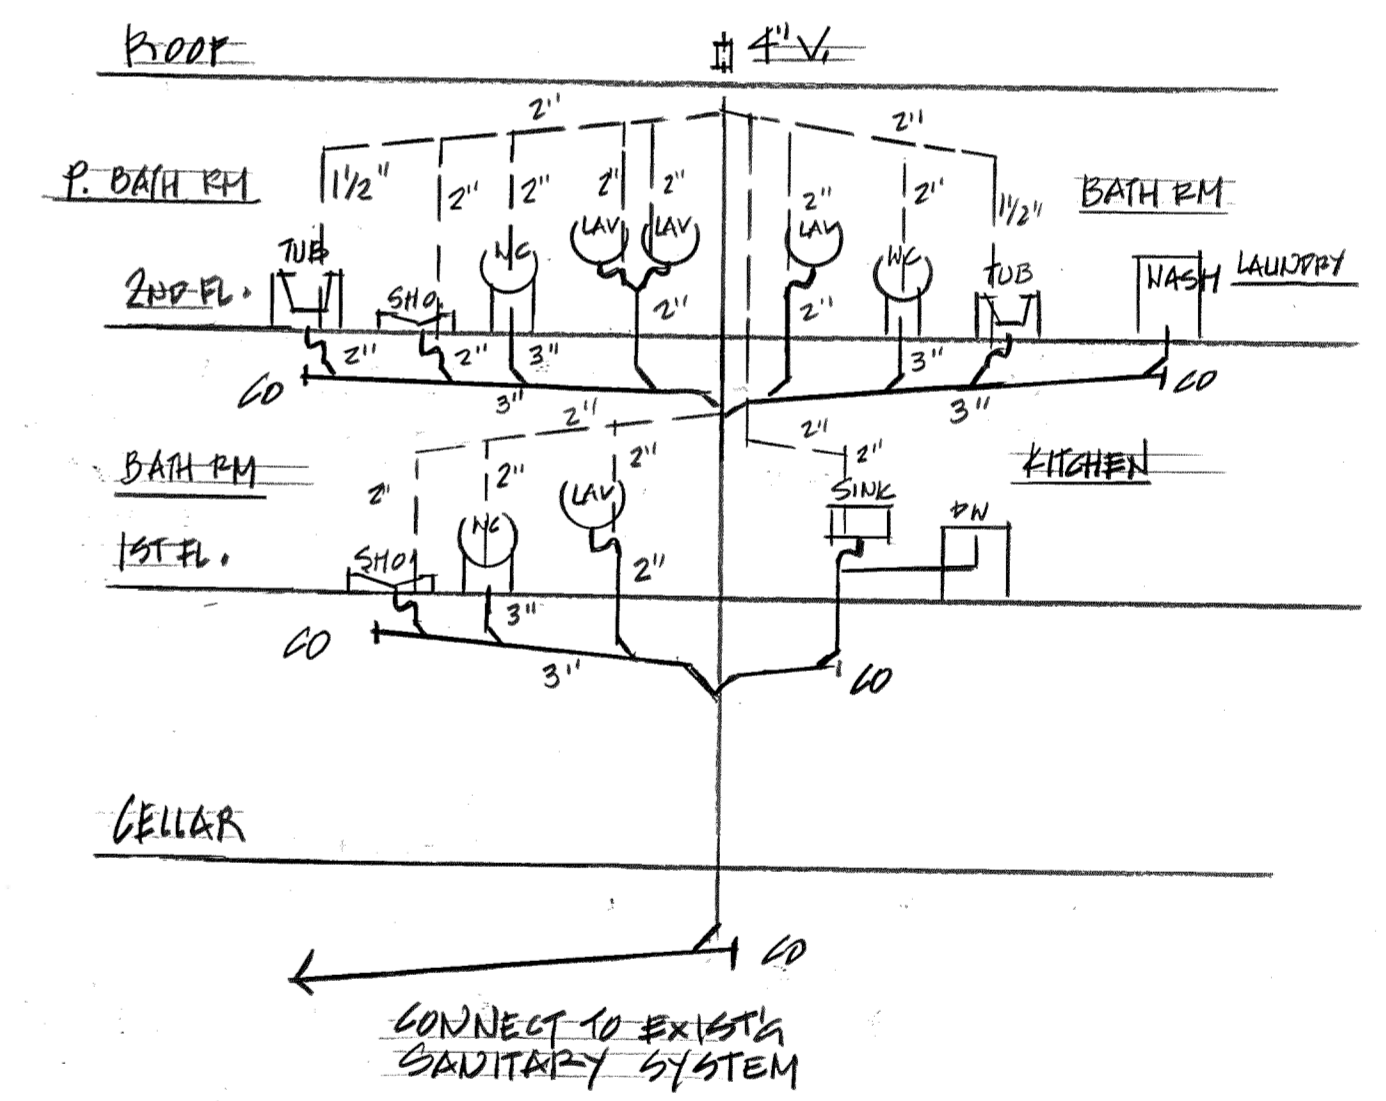 ROOF
4" V.
2"
2"
P. BATH RM
1 1/2"
2"
2"
2"
2"
2"
2"
1 1/2"
BATH RM
TUB
WC
LAV
LAV
LAV
WC
TUB
WASH
LAUNDRY
2ND FL.
SHO
2"
2"
2"
2"
3"
3"
CO
3"
3"
CO
2"
2"
BATH RM
2"
2"
2"
2"
KITCHEN
LAV
SINK
DW
1ST FL.
SHO
WC
2"
3"
CO
3"
CO
CELLAR
CO
CONNECT TO EXIST'G
SANITARY SYSTEM